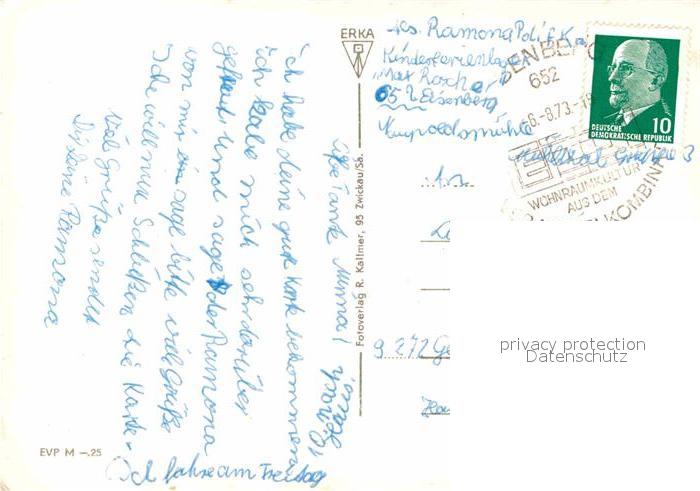 ERKA
Abs. Ramona
Kinderferienlager
"Max Roscher"
652 Eisenberg
Amtsbezirk
652
-8.73.-18
10
DEUTSCHE
DEMOKRATISCHE REPUBLIK
WOHNRAUMKULTUR
AUS DEM
KOMBINAT
liebe Tante
ich habe deine gute Karte bekommen
ich habe mich sehr darüber
gefreut und sage der Ramona
von mir sage bitte viele Grüße
Ich will nun Schließen die Karte
Viel Grüße sendet
Dir deine Ramona
Ich fahre am Freitag
9272
Fotoverlag R. Kallmer, 95 Zwickau/Sa.
EVP M –.25
privacy protection
Datenschutz